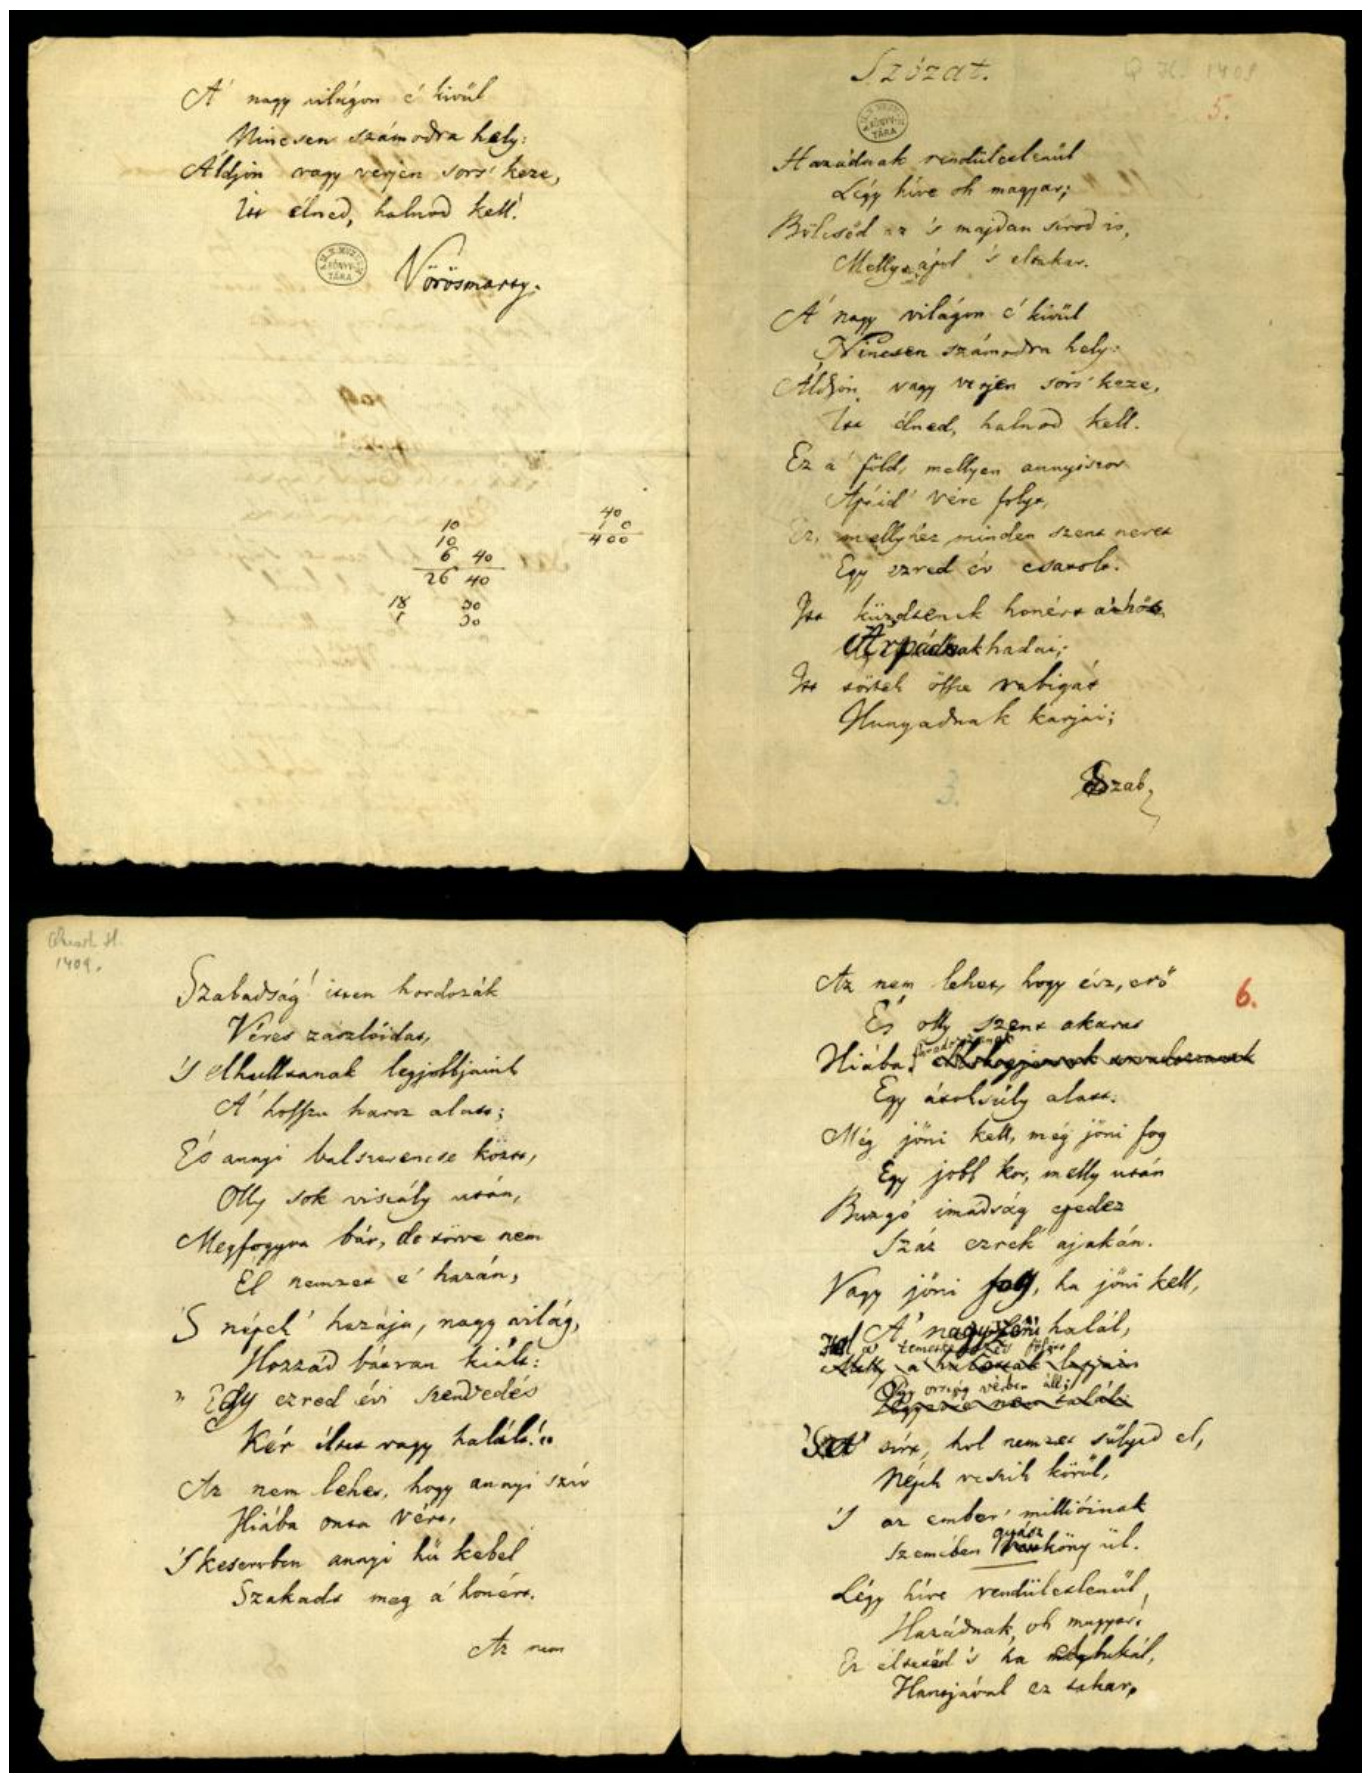 A' nagy világon e' kivűl
Nincsen számodra hely:
Áldjon vagy verjen sors' keze,
Itt élned, halnod kell!
Vörösmarty.
10
10
6 40
26 40
18 30
1 30
40
10
400
Szózat.
Q H. 1409
5.
Hazádnak rendűletlenűl
Légy híve oh magyar;
Bölcsőd az 's majdan sírod is,
Melly ápol 's eltakar.
A' nagy világon e' kivűl
Nincsen számodra hely:
Áldjon vagy verjen sors' keze,
Itt élned, halnod kell.
Ez a' föld, mellyen annyiszor
Apáid' vére folyt,
Ez, mellyhez minden szent nevet
Egy ezred év csatolt.
Itt küzdtenek honért a' hős
Árpádnak hadai;
Itt törtek össze rabigát
Hunyadnak karjai;
Szab,
3.
Quart. H.
1409.
Szabadság! itten hordozák
Véres zászlóidat,
'S elhulltanak legjobbjaink
A' hosszu harcz alatt;
És annyi balszerencse közt,
Olly sok viszály után,
Megfogyva bár, de törve nem
Él nemzet e' hazán,
'S népek' hazája, nagy világ,
Hozzád bátran kiált:
"Egy ezred évi szenvedés
Kér éltet vagy halált!"
Az nem lehet, hogy annyi szív
Hiába onta vért,
'S keservben annyi hű kebel
Szakadt meg a' honért.
Az nem
Az nem lehet, hogy ész, erő
És olly szent akarat
6.
Hiába sorvadozzanak
Egy átoksúly alatt.
Még jőni kell, még jőni fog
Egy jobb kor, melly után
Buzgó imádság epedez
Száz ezrek' ajakán.
Vagy jőni fog, ha jőni kell,
A' nagyszerü halál,
Hol a' temetkezés fölött
Egy ország vérben áll;
'S a' sírt, hol nemzet sűlyed el,
Népek veszik körűl,
'S az ember' millióinak
Szemében gyász köny űl.
Légy híve rendűletlenűl,
Hazádnak, oh magyar:
Ez éltetőd 's ha elbukál,
Hantjával ez takar,